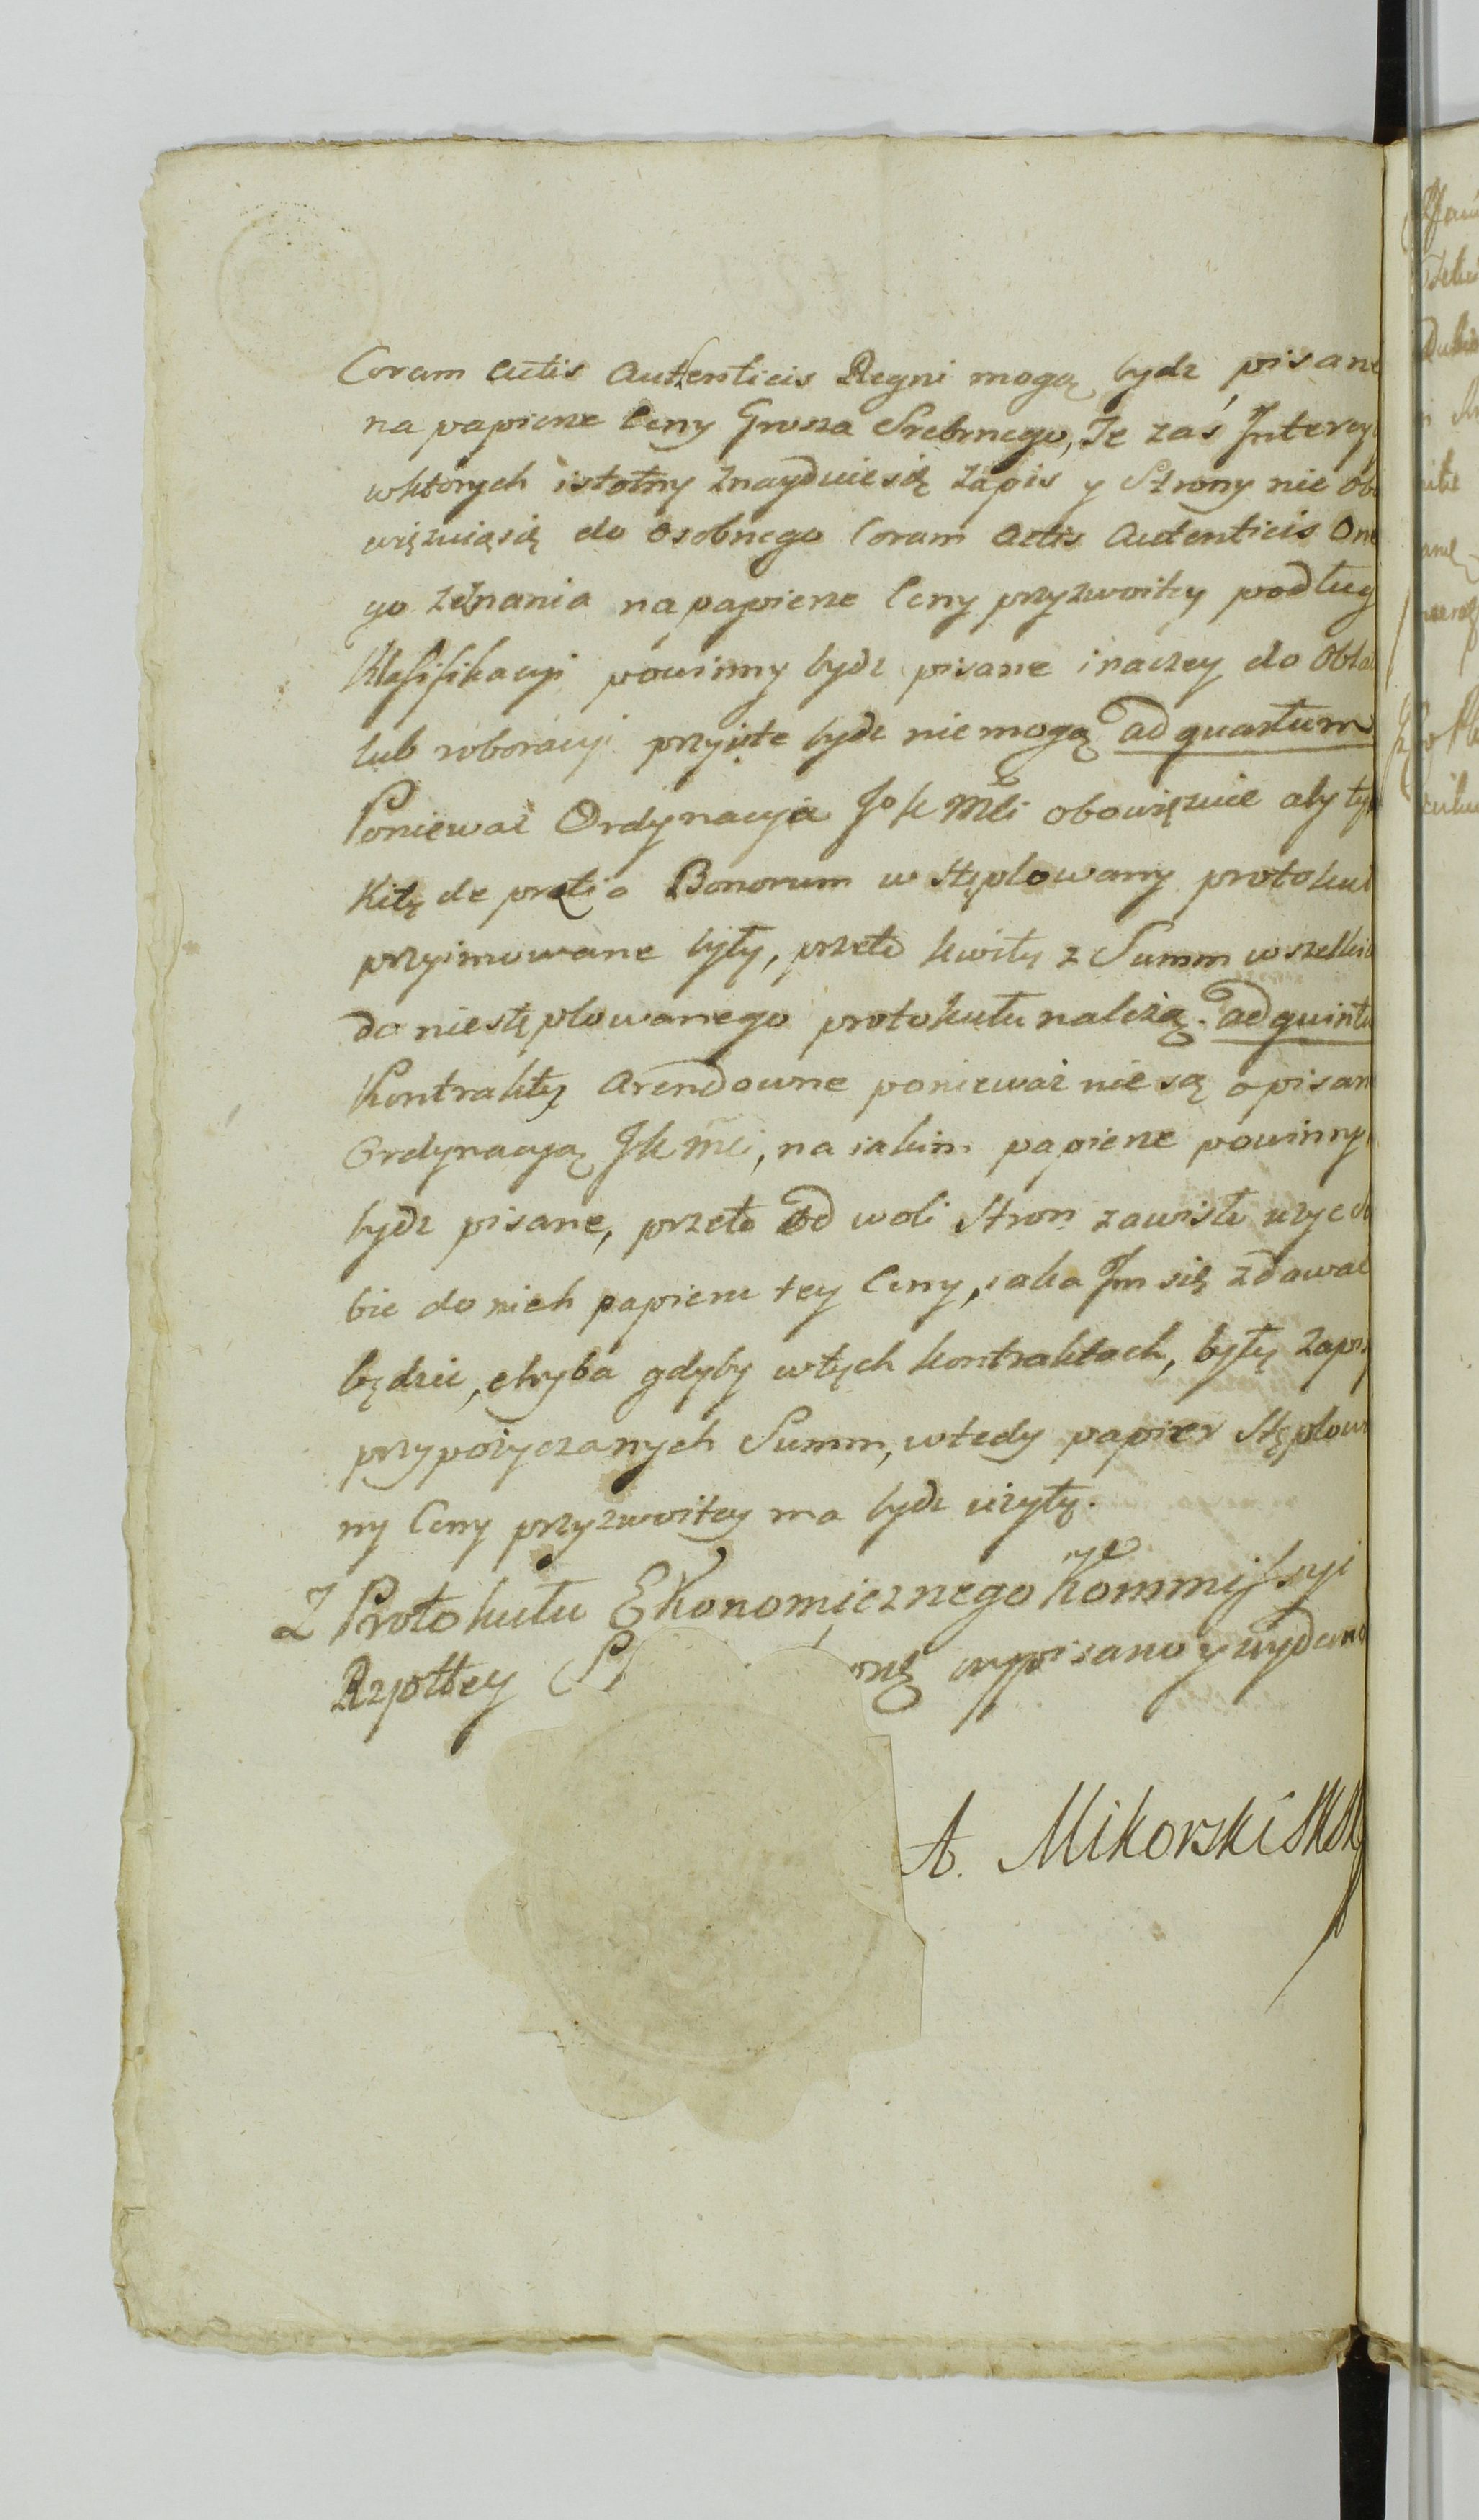 Coram Actis Autenticis Regni mogą bydz pisane
na papierze Ceny Grosza Srebrnego, Te zaś Intercy
wktorych istotny znayduie się zapis y Strony nie obo
więzuią się do osobnego Coram Actis Autenticis One
go zeznania na papierze Ceny przyzwoitey podług
Klasifikacyi powinny bydz pisane inaczey do Obla
lub roboracyi przyięte bydz niemogą ad quartum
Ponieważ Ordynacyia JoKMći obowięzuie aby ty
Kity de pretio Bonorum w stęplowany protokuł
przyimowane były, przeto kwity z Summ wszelki
do niestęplowanego protokułu należą. ad quintu
Kontrakty Arendowne ponieważ nie są opisan
Ordynacyią JKMći, na iakim papierze powinny
bydz pisane, przeto od woli Stron zawisło uzyc do
bie do nich papieru tey Ceny, iaka Im się zdawać
będzie, chyba gdyby wtych kontraktach, były zapi
przypożyczanych Summ, wtedy papier Stęplowa
ny Ceny przyzwoitey ma bydz użyty.
Z Protokułu Ekonomicznego Kommissyi
Rzpltey wypisano y wydano
A. Mikorski